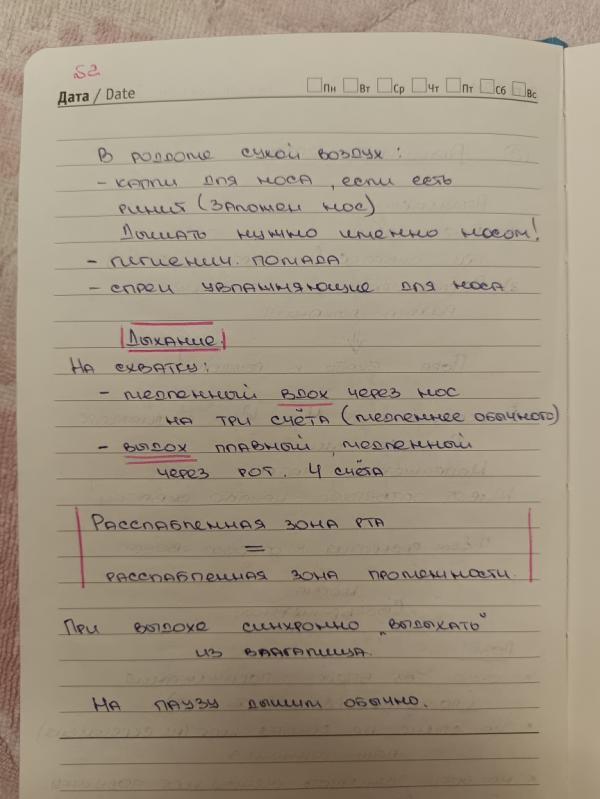 52
Дата / Date Пн Вт Ср Чт Пт Сб Вс
В роддоме сухой воздух:
- капли для носа, если есть
ринит (заложен нос)
Дышать нужно именно носом!
- гигиенич. помада
- спреи увлажняющие для носа.
Дыхание.
На схватку:
- медленный вдох через нос
на три счёта (медленнее обычного)
- выдох плавный, медленный
через рот. 4 счёта
Расслабленная зона рта
=
расслабленная зона промежности.
При выдохе синхронно „выдыхать"
из влагалища.
На паузу дышим обычно.